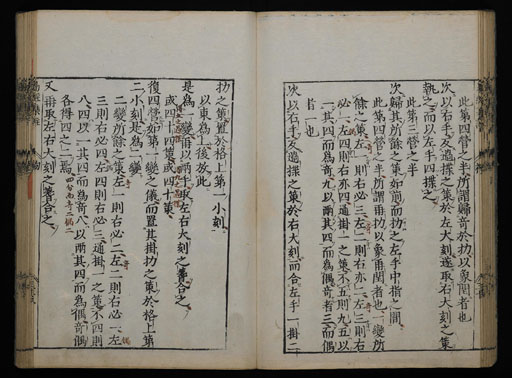 此第四營之半所謂歸奇於扐以象閏者也
次以右手反過揲之策於左大刻遂取右大刻之策
執之而以左手四揲之
此第三營之半
次歸其所餘之策如前而扐之左手中指之間
此第四營之半所謂再扐以象再閏者也一變所
餘之策左一則右必三左二則右亦二左三則右
必一左四則右亦四通掛一之策不五則九五以
一其四而為奇九以兩其四而為偶奇者三而偶
者一也
次以右手反過揲之策於右大刻而合左手一掛二
扐之策置於格上第一小刻
以東為上後放此
是為一變再以兩手取左右大刻之蓍合之
或四十四策或四十策
復四營如第一變之儀而置其掛扐之策於格上第
二小刻是為二變
二變所餘之策左一則右必二左二則右必一左
三則右必四左四則右必三通掛一之策不四則
八四以一其四而為奇八以兩其四而為偶奇偶
各得四之二焉
又再取左右大刻之蓍合之